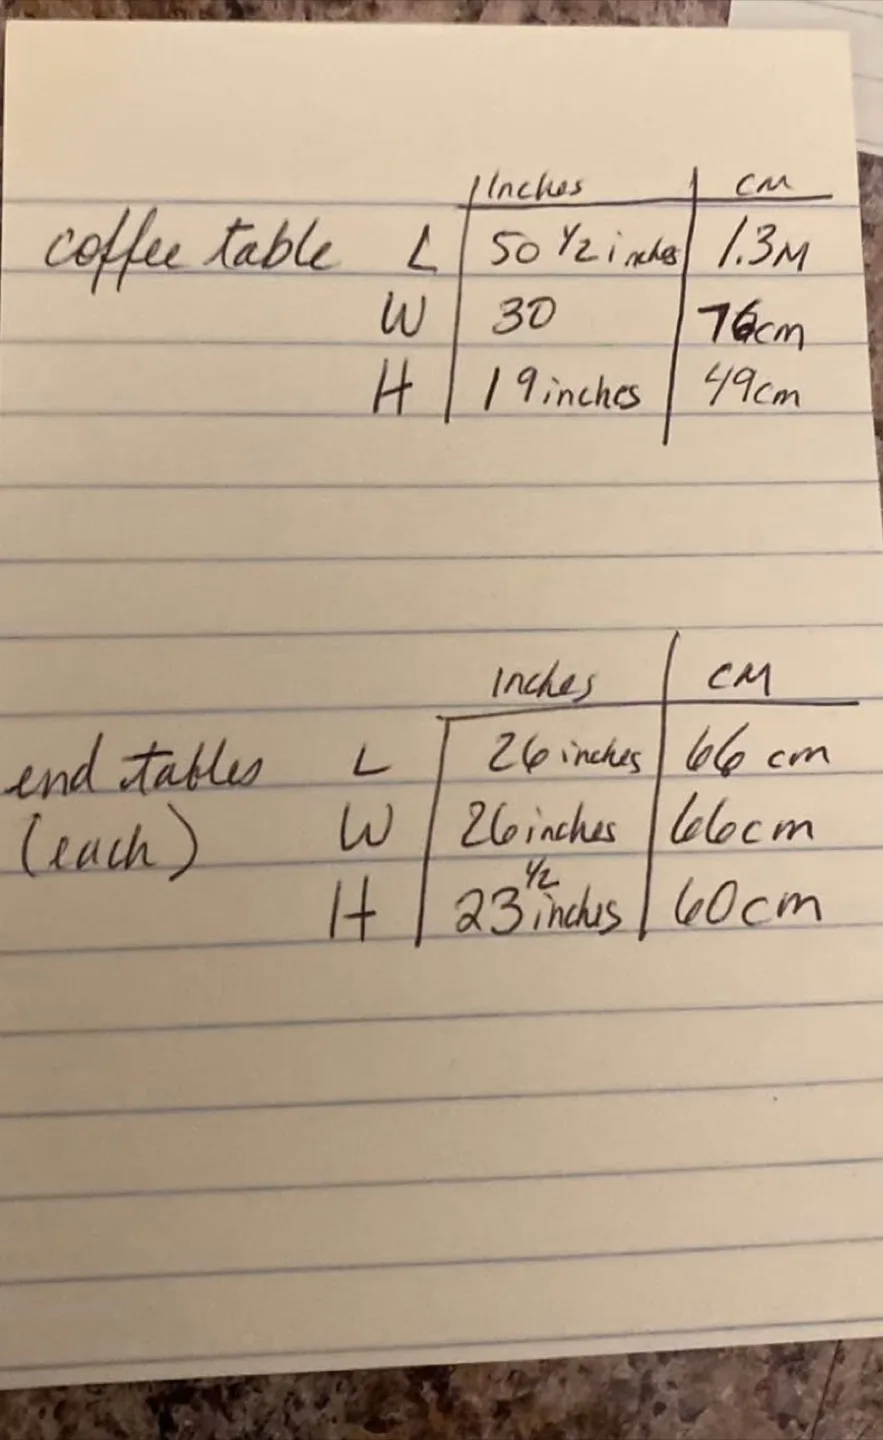 Inches CM
coffee table L 50 1/2 inches 1.3M
W 30 76cm
H 19 inches 49cm
inches CM
end tables L 26 inches 66 cm
(each) W 26 inches 66cm
H 23 1/2 inches 60cm